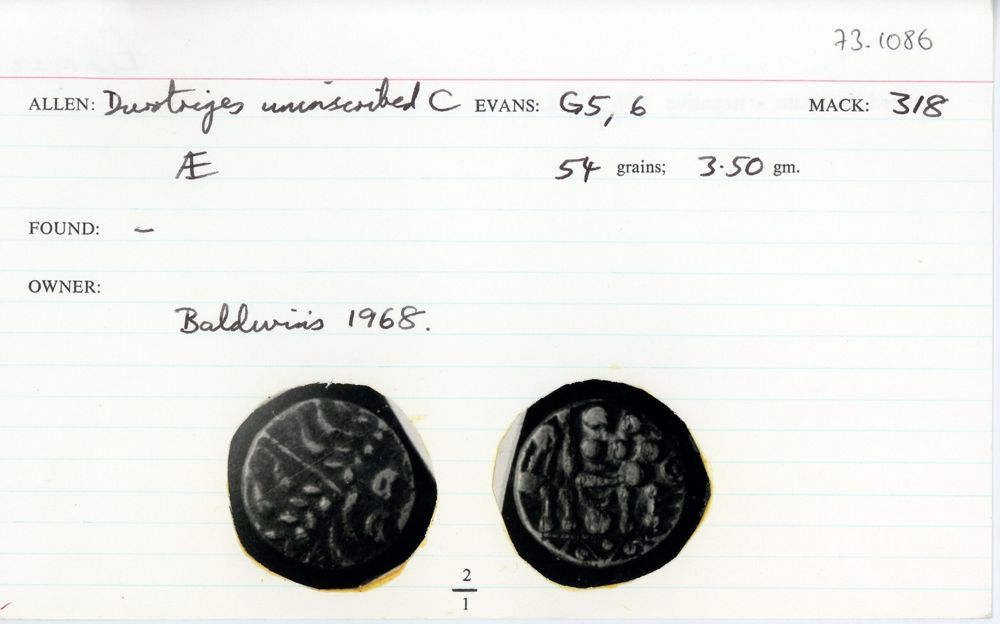 73.1086
ALLEN: Durotriges uninscribed C EVANS: G5, 6 MACK: 318
Æ 54 grains; 3.50 gm.
FOUND: –
OWNER:
Baldwin's 1968.
2
1